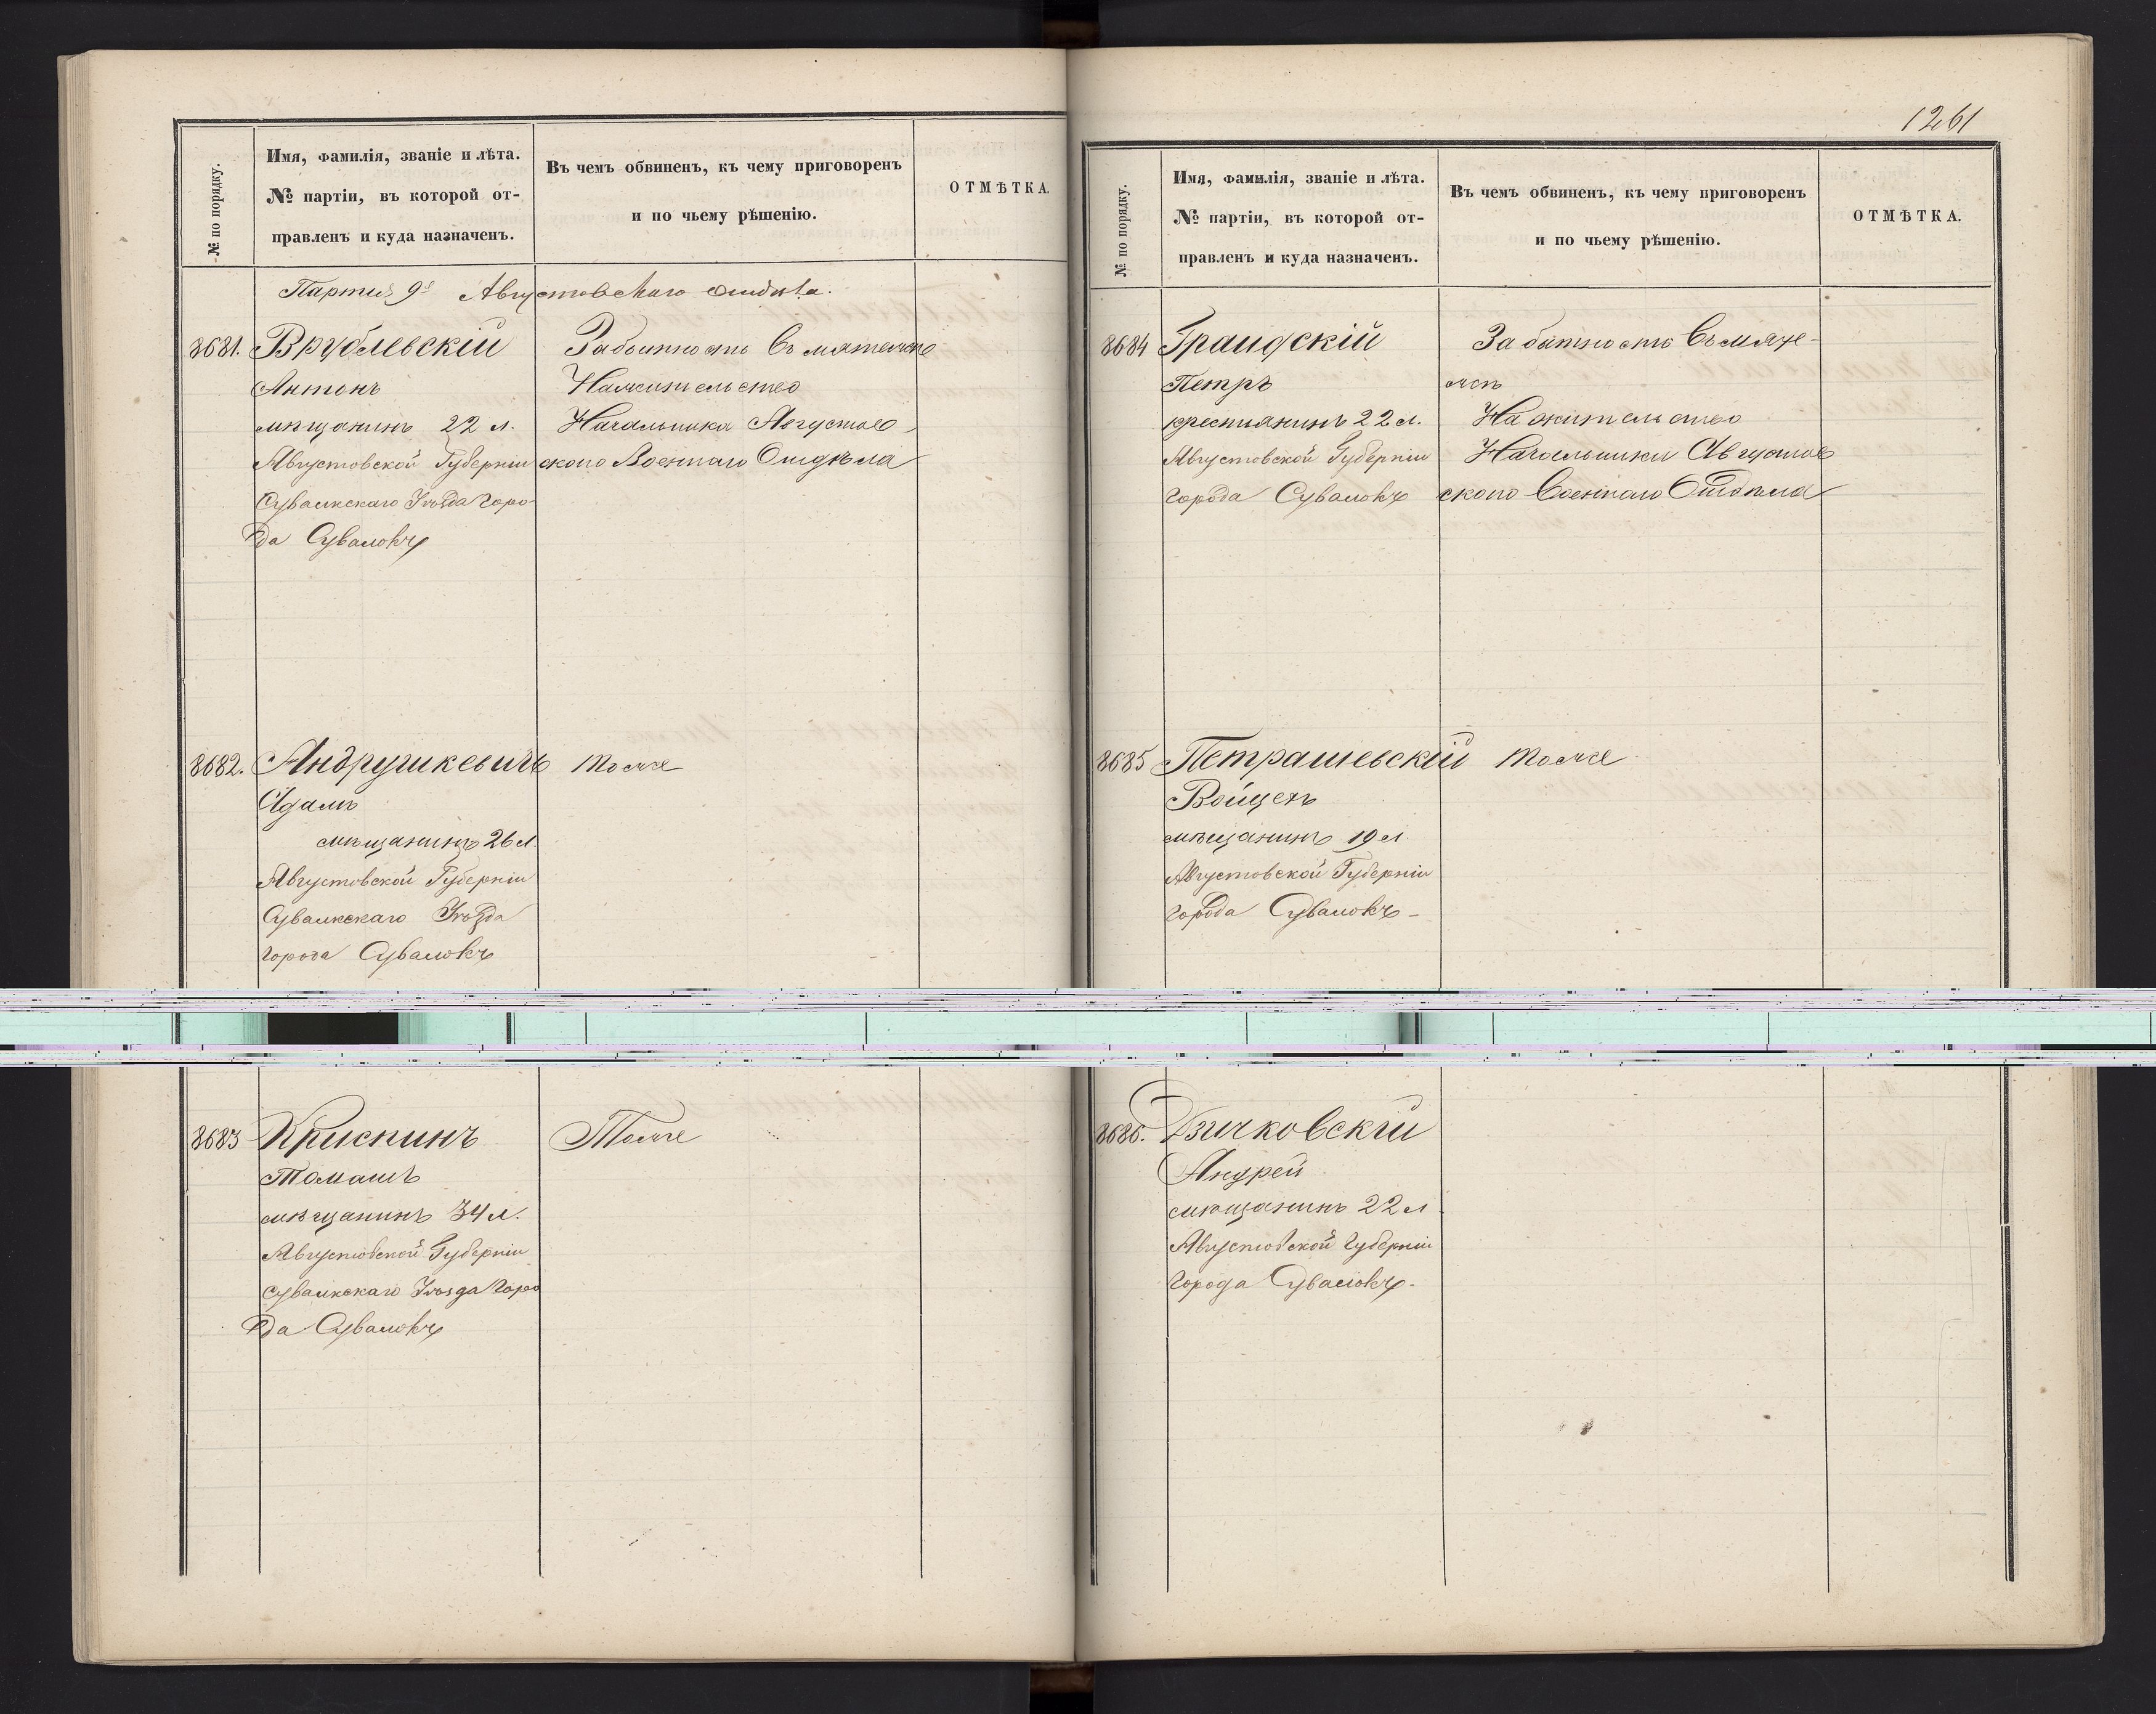 № по порядку.
Имя, фамилія, званіе и лѣта.
№ партіи, въ которой от-
правленъ и куда назначенъ.
Въ чемъ обвиненъ, къ чему приговоренъ
и по чьему рѣшенію.
ОТМѢТКА.
Партія 9я Августовскаго отдѣла.
8681. Врублевскій
Антонъ
мѣщанинъ 22 л.
Августовской Губерніи
Сувалкскаго Уѣзда Горо-
да Сувалокъ
За бытность въ мятежѣ
На жительство
Начальника Августов-
скаго Военнаго Отдѣла
8682. Андрушкевичъ
Адамъ
мѣщанинъ 26 л.
Августовской Губерніи
Сувалкскаго Уѣзда
города Сувалокъ
тоже
8683 Крискинъ
Томашъ
мѣщанинъ 34 л.
Августовской Губерніи
Сувалкскаго Уѣзда Горо
да Сувалокъ
Тоже
1261
№ по порядку.
Имя, фамилія, званіе и лѣта.
№ партіи, въ которой от-
правленъ и куда назначенъ.
Въ чемъ обвиненъ, къ чему приговоренъ
и по чьему рѣшенію.
ОТМѢТКА.
8684
Петръ
крестьянинъ 22 л.
Августовской Губерніи
города Сувалокъ
За бытность въ мяте-
жѣ
На жительство
Начальника Августов
скаго Военнаго Отдѣла
8685 Петрашевскій
Войцехъ
мѣщанинъ 19 л.
Августовской Губерніи
города Сувалокъ -
тоже
8686. Дзичковскій
Андрей
мѣщанинъ 22 л.
Августовской Губерніи
города Сувалокъ.